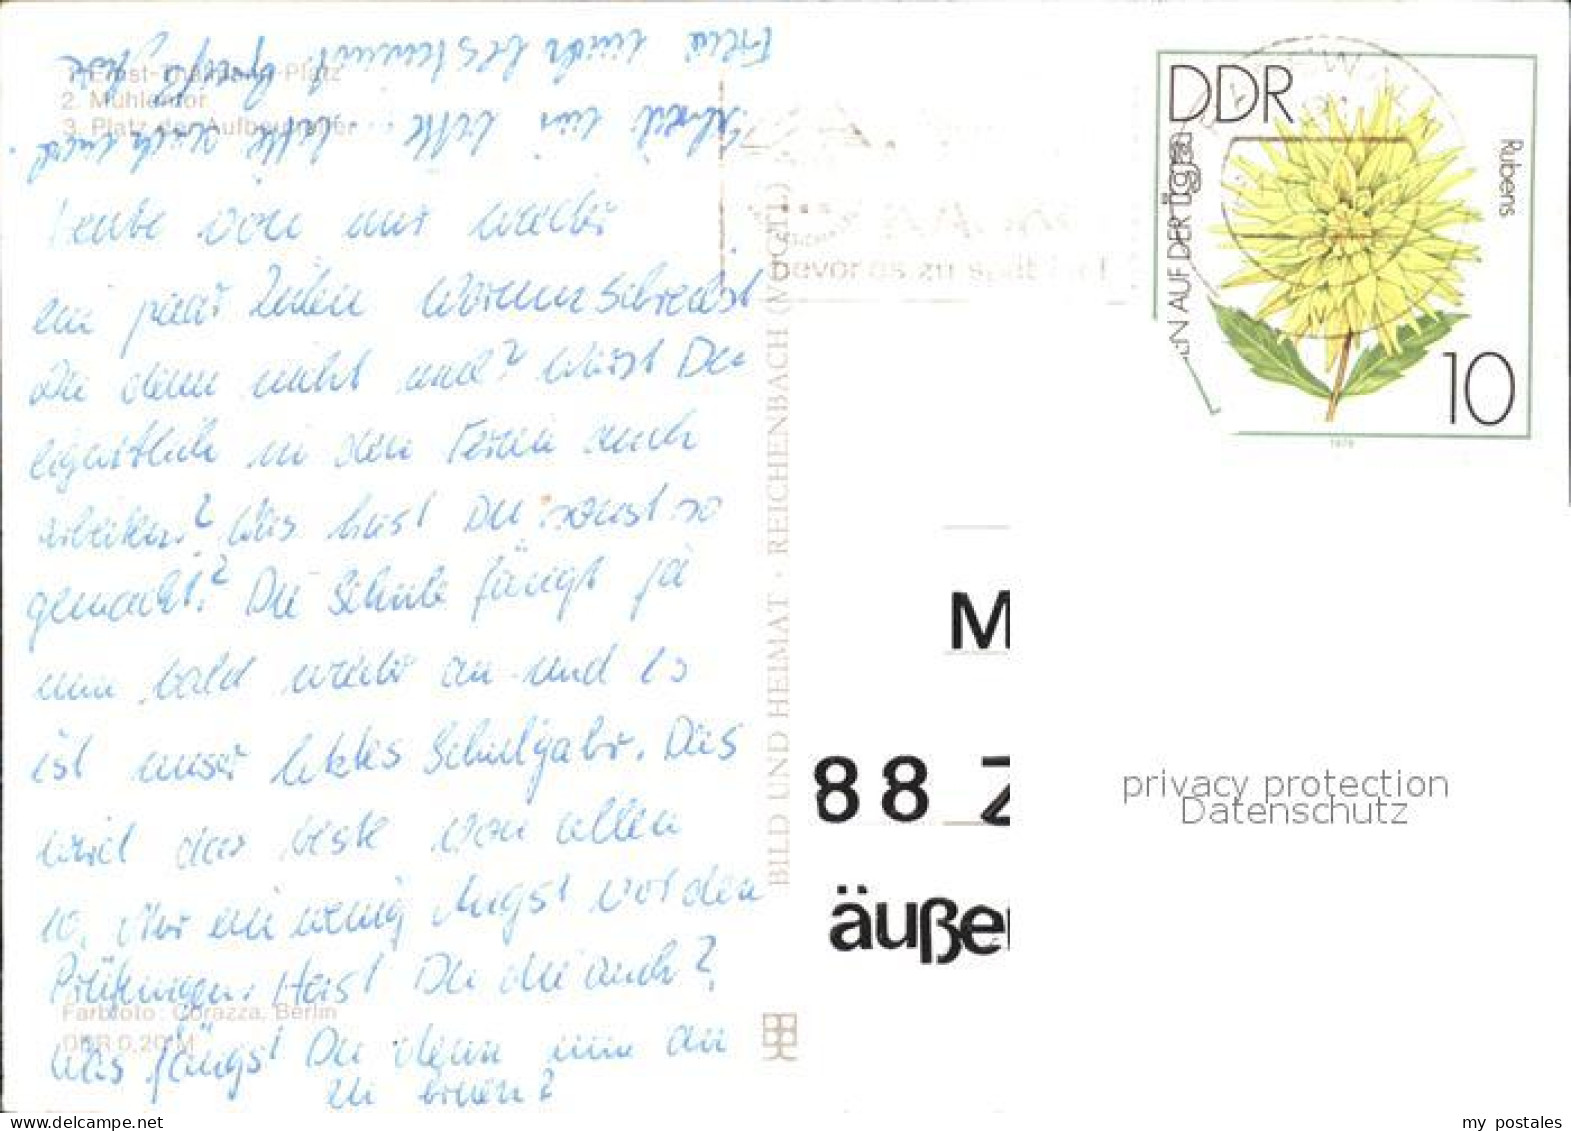 1. Ernst-Thälmann-Platz
2. Mühlentor
3. Platz der Aufbauhelfer
Heute von mir wieder
ein paar Zeilen. Warum schreibst
Du denn nicht mal? Warst Du
eigentlich in den Ferien auch
arbeiten? Was hast Du sonst so
gemacht? Die Schule fängt ja
nun bald wieder an und es
ist unser letztes Schuljahr. Das
wird das beste von allen
10. Nur ein wenig Angst vor den
Prüfungen. Hast Du die auch?
Was fängst Du denn nun an
zu lernen?
Schreib mir bitte bitte auch mal.
Freu mich bestimmt
Farbfoto: Corazza, Berlin
DDR 0,20 M
BILD UND HEIMAT · REICHENBACH (VOGTL)
bevor es zu spät ist!
DDR
Rubens
10
1979
M
88 Z
äuße
privacy protection
Datenschutz
my postales